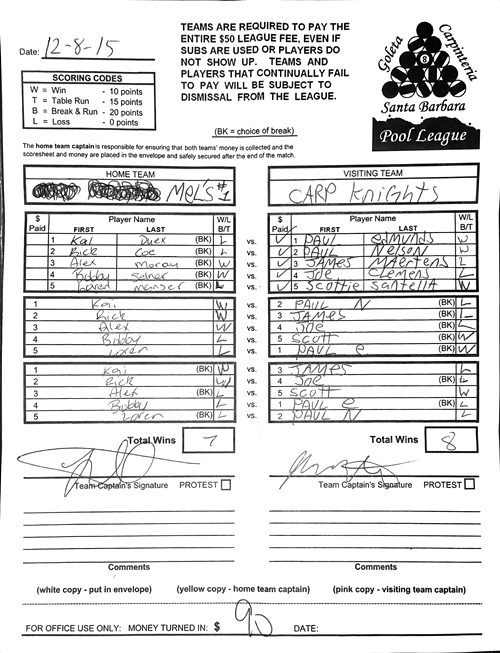 Date: 12-8-15
TEAMS ARE REQUIRED TO PAY THE
ENTIRE $50 LEAGUE FEE, EVEN IF
SUBS ARE USED OR PLAYERS DO
NOT SHOW UP. TEAMS AND
PLAYERS THAT CONTINUALLY FAIL
TO PAY WILL BE SUBJECT TO
DISMISSAL FROM THE LEAGUE.
Goleta Carpinteria
8
Santa Barbara
Pool League
SCORING CODES
W = Win - 10 points
T = Table Run - 15 points
B = Break & Run - 20 points
L = Loss - 0 points
(BK = choice of break)
The home team captain is responsible for ensuring that both teams' money is collected and the
scoresheet and money are placed in the envelope and safely secured after the end of the match.
HOME TEAM VISITING TEAM
MEL'S #1 CARP Knights
$ Paid Player Name FIRST LAST W/L B/T $ Paid Player Name FIRST LAST W/L B/T
1 Kai Duex (BK) L vs. ✓ 1 PAUL edmunds W
2 Rick Coe (BK) L vs. ✓ 2 PAUL Nelson W
3 Alex Moray (BK) W vs. ✓ 3 JAMES MAertens L
4 Bobby Selner (BK) W vs. ✓ 4 Joe Clemens L
5 Loren Manser (BK) L vs. ✓ 5 Scottie Santella W
1 Kai W vs. 2 PAUL N (BK) L
2 Rick W vs. 3 JAMES (BK) L
3 Alex W vs. 4 Joe (BK) L
4 Bobby L vs. 5 Scott (BK) W
5 Loren L vs. 1 PAUL e (BK) W
1 Kai (BK) W vs. 3 JAMES L
2 Rick (BK) W vs. 4 Joe L
3 Alex (BK) L vs. 5 Scott W
4 Bobby L vs. 1 PAUL e (BK)
5 Loren (BK) L vs. 2 PAUL N
Total Wins 7 Total Wins 8
Team Captain's Signature PROTEST Team Captain's Signature PROTEST
Comments Comments
(white copy - put in envelope) (yellow copy - home team captain) (pink copy - visiting team captain)
FOR OFFICE USE ONLY: MONEY TURNED IN: $ 90 DATE: